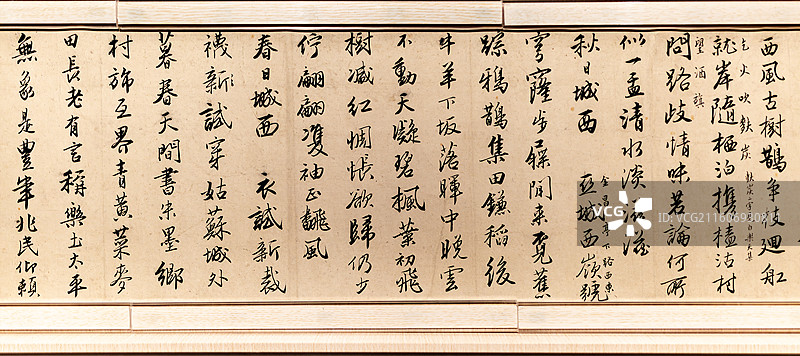 西風古樹鵲爭枝迴舡
乞火吹鉄炭
就岸隨栖泊携榼沽村
望酒旗
問路歧情味若論何所
似一盂清水淡
秋日城西
穹蘿步屧閒来覓蕉
踪鴉鵲集田鐮稻後
牛羊下坂落暉中晚雲
不動天凝碧楓葉初飛
樹减紅惆悵欲歸仍少
佇翩翩雙袖正飄風
春日城西
衣試新裁
襪新試穿姑蘇城外
暮春天間書朱墨鄉
村旆互界青黄菜麥
田長老有言稱樂土太平
無象是豐年兆民仰賴
VCG
VCG211606930811